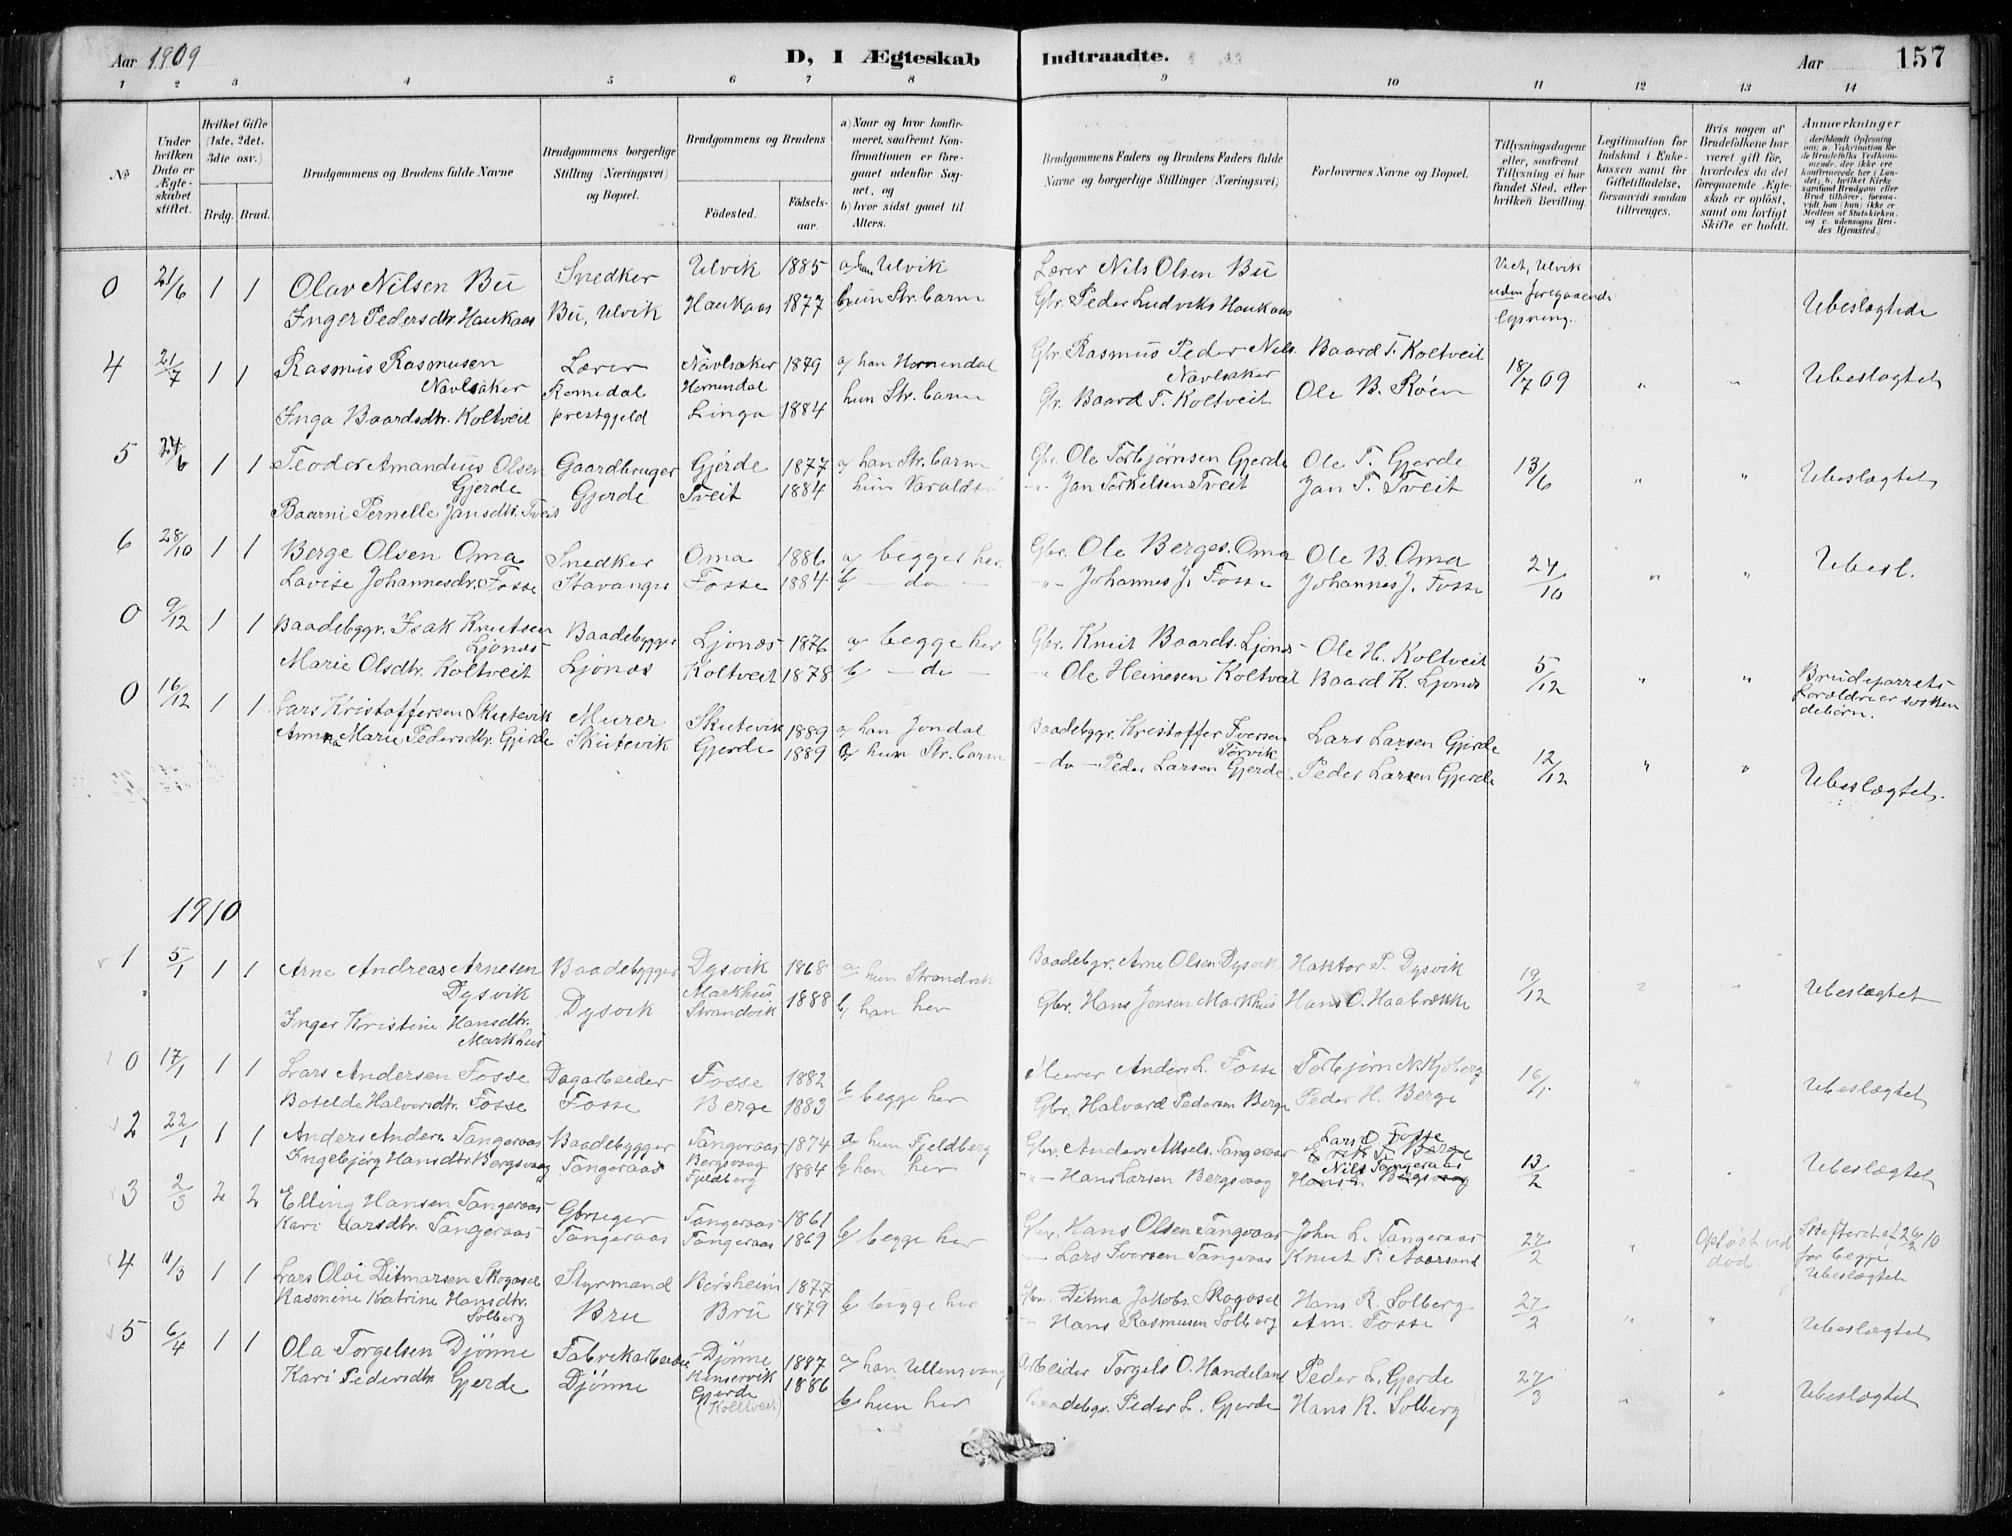 Aar 1909
D, I Ægteskab Indtraadte.
Aar
157
1 2 3 4 5 6 7 8 9 10 11 12 13 14
No
Under hvilken Dato er Ægteskabet stiftet.
Hvilket Gifte (1ste, 2det, 3die osv.)
Brdg. Brud.
Brudgommens og Brudens fulde Navne
Brudgommens borgerlige Stilling (Næringsvei) og Bopæl.
Brudgommens og Brudens
Fødested.
Fødselsaar.
a) Naar og hvor konfirmeret, saafremt Konfirmationen er foregaaet udenfor Sognet, og
b) hvor sidst gaaet til Alters.
Brudgommens Faders og Brudens Faders fulde Navne og borgerlige Stillinger (Næringsvei)
Forlovernes Navne og Bopæl.
Tillysningsdagene eller, saafremt Tillysning ei har fundet Sted, efter hvilken Bevilling.
Legitimation for Indskud i Enkekassen samt for Giftetilladelse, forsaavidt saadan tiltrænges.
Hvis nogen af Brudefolkene har været gift før, hvorledes da det foregaaende Ægteskab er opløst, samt om lovligt Skifte er holdt.
Anmærkninger (deriblandt Oplysning om: a. Vakcination for de Brudefolks Vedkommende, der ikke ere konfirmerede her i Landet; b. hvilket Kirkesamfund Brudgom eller Brud tilhører, forsaavidt han (hun) ikke er Medlem af Statskirken, og c. udensogns Brudes Hjemsted.)
0 21/6 1 1 Olav Nilsen Bu Snedker Ulvik 1885 a) han Ulvik Lærer Nils Olsen Bu Viet, Ulvik
Inger Pedersdtr. Haukaas Bu, Ulvik Haukaas 1877 hun Str.barm Gbr. Peder Ludviks Haukaas uden foregaaende lysning. Ubeslægtede
4 21/7 1 1 Rasmus Rasmusen Navlsaker Lærer Navlsaker Hornindal 1879 a) han Hornindal Gbr. Rasmus Peder Nils. Navlsaker Baard T. Koltveit 18/7 09 " " Ubeslægtet
Inga Baardsdtr. Koltveit Romedal prestgjeld Linga 1884 hun Str.barm Gr. Baard T. Koltveit Ole B. Røen
5 24/6 1 1 Teodor Amandius Olsen Gjerde Gaardbruger Gjerde 1877 a) han Str.barm Gbr. Ole Torbjørnsen Gjerde Ole T. Gjerde 13/6 " " Ubeslægtet
Baarni Pernelle Jansdtr. Tveit Gjerde Tveit 1884 hun Varaldsø -"- Jan Torkelsen Tveit Jan T. Tveit
6 28/10 1 1 Berge Olsen Oma Snedker Oma 1886 a) begge her. Gbr. Ole Berges. Oma Ole B. Oma 24/10 " " Ubesl.
Lovise Johannesdtr. Fosse Stavanger Fosse 1884 b) - do - -"- Johannes J. Fosse Johannes J. Fosse
0 9/12 1 1 Baadebygr. Isak Knutsen Ljones Baadebygger Ljones 1876 a) begge her Gbr. Knut Baards. Ljones Ole H. Koltveit 5/12 " " Brudeparrets
Marie Olsdtr. Koltveit Ljones Koltveit 1878 b) - do - -"- Ole Heinesen Koltveit Baard K. Ljones forældre er søskendebørn.
0 16/12 1 1 Lars Kristoffersen Skutevik Murer Skutevik 1889 a) han Jondal Baadebygr. Kristoffer Iversen Torvik Lars Larsen Gjerde 12/12 " " Ubeslægtet.
Anna Marie Pedersdtr. Gjerde Skutevik Gjerde 1889 hun Str.barm - do - Peder Larsen Gjerde Peder Larsen Gjerde
1910
1 5/1 1 1 Arne Andreas Arnesen Dysvik Baadebygger Dysvik 1868 a) hun Strandvik Baadebgr. Arne Olsen Dysvik Haktor P. Dysvik 19/12 " " Ubeslægtet
Inger Kristine Hansdtr. Markhus Dysvik Markhus Strandvik 1888 b) han her Gbr. Hans Jonsen Markhus Hans O. Haabrække
0 17/1 1 1 Lars Andersen Fosse Dagarbeider Fosse 1882 b) begge her Murer Anders L. Fosse Torbjørn N. Kjoberg 16/1 " " Ubeslægtet
Botelde Halvorsdtr. Fosse Fosse Berge 1883 Gbr. Halvard Pedersen Berge Peder H. Berge
2 22/1 1 1 Anders Anders. Tangeraas Baadebygger Tangeraas 1874 a) hun Fjeldberg Gbr. Anders Aksels. Tangeraas Lars O. Fosse 13/2 " Ubeslægtet
Ingebjørg Hansdtr. Bergsvaag Tangeraas Bergsvaag Fjeldberg 1884 b) han her -"- Hans Larsen Bergsvaag Nils Tangeraas
3 2/3 2 2 Elling Hansen Tangeraas Gbruger Tangeraas 1861 b) begge her Gbr. Hans Olsen Tangeraas John L. Tangeraas 27/2 " Opløst ved død. Skifteret af 26/2 10 for begge
Kari Larsdtr. Tangeraas Tangeraas Tangeraas 1869 -"- Lars Iversen Tangeraas Knut P. Aarsand Ubeslægtet
4 11/3 1 1 Lars Olai Ditmarsen Skogasel Styrmand Børsheim 1877 b) begge her Gbr. Ditma Jakobs. Skogasel Hans R. Solberg 27/2 " " Ubeslægtet
Rasmene Katrine Hansdtr. Solberg Bru Bru 1879 " Hans Rasmusen Solberg Am. Fosse
5 6/4 1 1 Ola Torgelsen Djønne Fabrikarbeider Djønne Kinservik 1887 a) han Ullensvang Arbeider Torgels O. Handeland Peder L. Gjerde 27/3 " " Ubeslægtet
Kari Pedersdtr. Gjerde Djønne Gjerde (Kolltveit) 1886 b) hun her Baadebgr. Peder L. Gjerde Hans R. Solberg